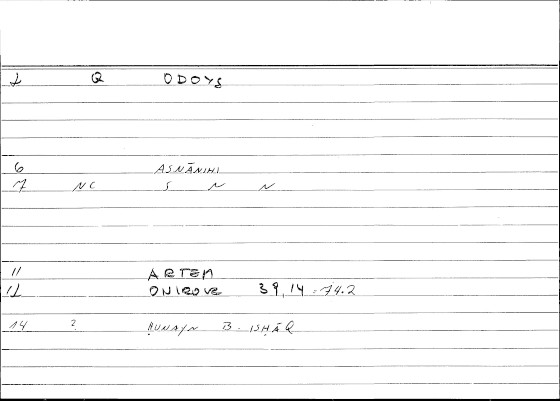 1 Q ODOYS
6 ASNĀNIHI
7 NC S N N
11 ARTEM
12 ONIROVE 39,14 = 74.2
14 ? ḤUNAYN B. ISḤĀQ